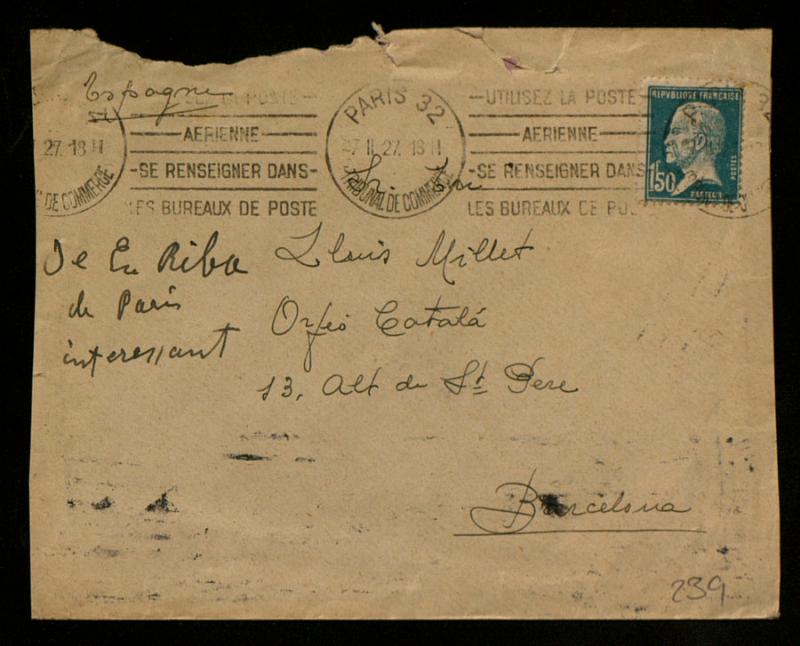 Espagne
UTILISEZ LA POSTE
AERIENNE
SE RENSEIGNER DANS
LES BUREAUX DE POSTE
27. 18 H
DE COMMERCE
PARIS 32
II. 27. 18 H
TRIBUNAL DE COMMERCE
-UTILISEZ LA POSTE
AERIENNE
-SE RENSEIGNER DANS
LES BUREAUX DE
REPUBLIQUE FRANÇAISE
1F50
POSTES
PASTEUR
Lluis Millet
Orfeó Catalá
13, Alt de St Pere
Barcelona
De En Riba
de Paris
interessant
239